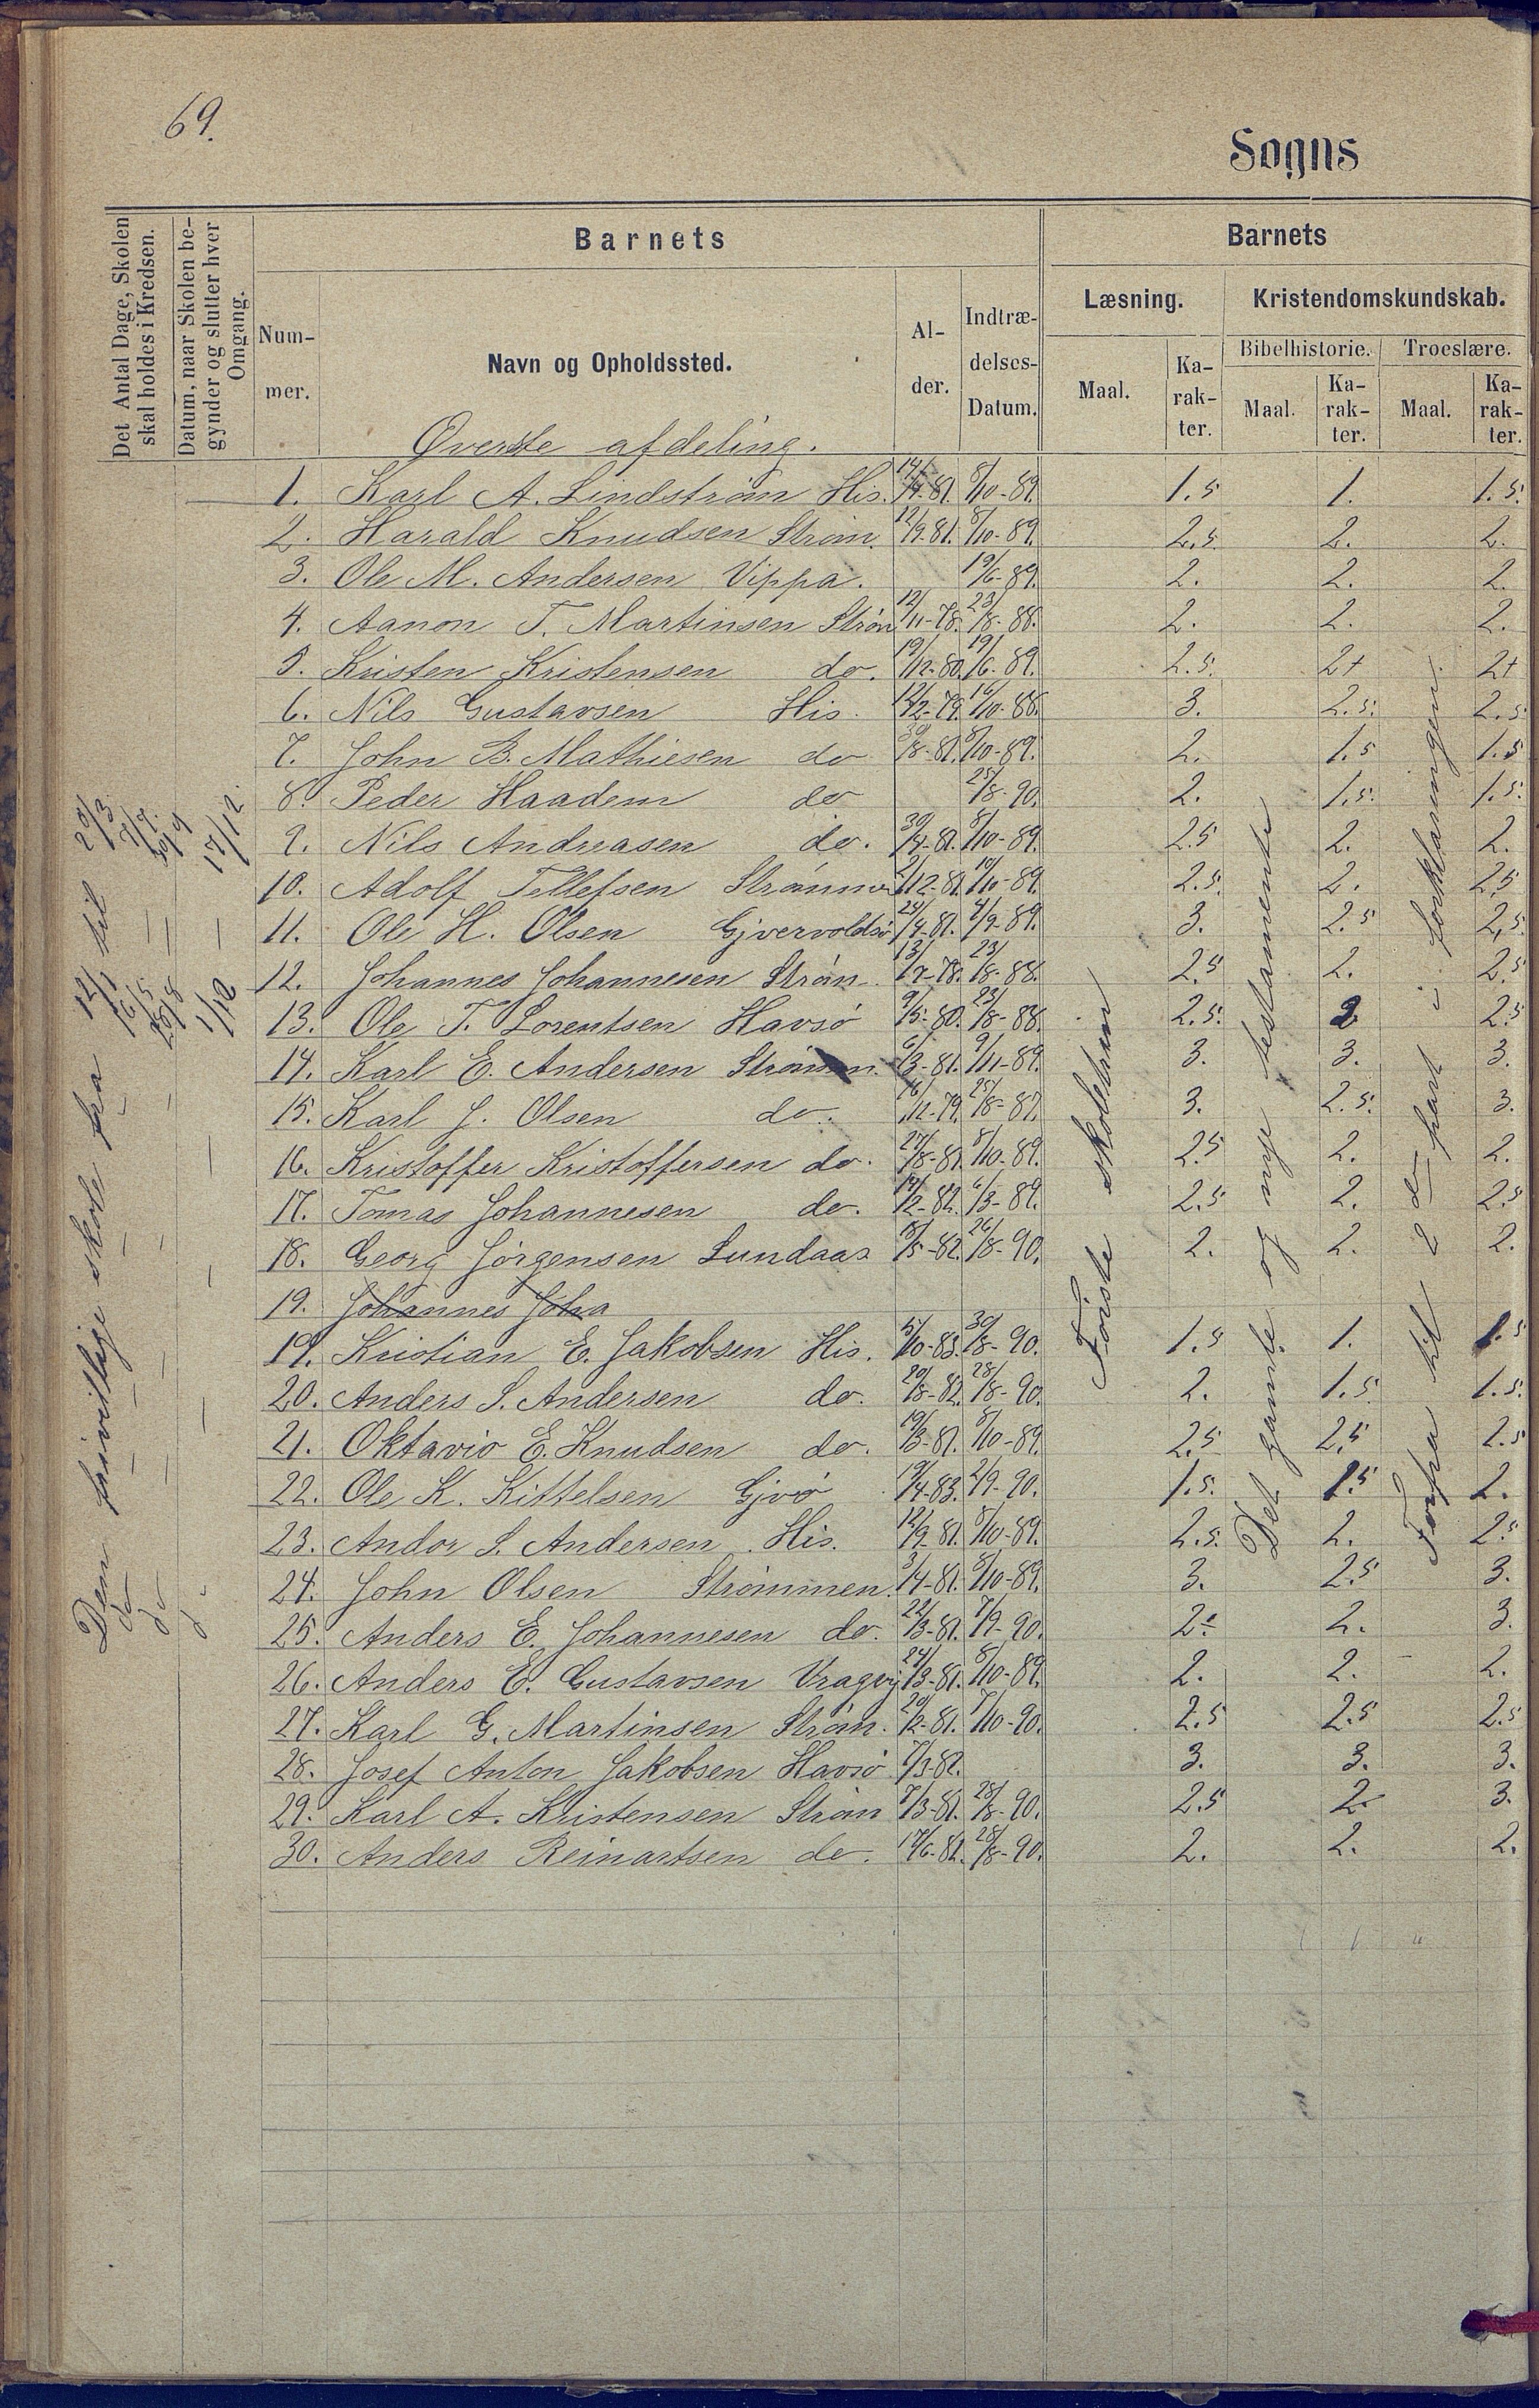 69.
Sogns
Det Antal Dage, Skolen skal holdes i Kredsen.
Datum, naar Skolen begynder og slutter hver Omgang.
Barnets
Barnets
Nummer.
Navn og Opholdssted.
Alder.
Indtrædelses-Datum.
Læsning.
Kristendomskundskab.
Maal.
Karakter.
Bibelhistorie.
Troeslære.
Maal.
Karakter.
Maal.
Karakter.
Øverste afdeling.
1. Karl A. Lindstrøm His. 8/10-89. 1.5 1. 1.5.
2. Harald Knudsen Strøm. 12/9-81. 8/10-89. 2.5. 2. 2.
3. Ole M. Andersen Vippa. 19/6-89. 2. 2. 2.
4. Aanon T. Martinsen Strøm 12/11-78. 23/8-88. 2. 2. 2.
5. Kristen Kristensen do. 19/12-80. 19/6-89. 2.5. 2+ 2+
6. Nils Gustavsen His. 12/2-79. 16/10-88. 3. 2.5. 2.5
7. John B. Mathiesen do 30/8-81. 8/10-89. 2. 1.5 1.5
8. Peder Haadem do 25/8-90. 2. 1.5. 1.5.
9. Nils Andreasen do. 30/4-81. 8/10-89. 2.5 2. 2.
10. Adolf Tellefsen Strømmen 2/12-81. 10/10-89. 2.5. 2. 2.5
11. Ole H. Olsen Gjervoldsø 24/4-81. 4/9-89. 3. 2.5 2.5.
12. Johannes Johannesen Strøm. 13/7-78. 23/8-88. 2.5 2. 2.5
13. Ole T. Lorentsen Havsø 9/5-80. 23/8-88. 2.5. 2 2.5
14. Karl E. Andersen Strømmen. 6/3-81. 9/11-89. 3. 3. 3.
15. Karl J. Olsen do. 16/12-79. 25/8-87. 3. 2.5. 3.
16. Kristoffer Kristoffersen do. 27/8-81. 8/10-89. 2.5 2. 2.
17. Tomas Johannesen do. 14/2-82. 6/3-89. 2.5 2. 2.5
18. Georg Jørgensen Lundaas 18/5-82. 26/8-90. 2. 2. 2.
19. Johannes Joha
19. Kristian E. Jakobsen His. 5/10-83. 30/8-90. 1.5 1. 1.5
20. Anders S. Andersen do. 20/8-82. 28/8-90. 2. 1.5. 1.5.
21. Oktavio E. Knudsen do. 19/3-81. 8/10-89. 2.5 2.5 2.5
22. Ole K. Kittelsen Gjvø 19/4-83. 2/9-90. 1.5. 1.5 2.
23. Andor S. Andersen His. 12/9-81. 8/10-89. 2.5. 2. 2.5
24. John Olsen Strømmen. 3/4-81. 8/10-89. 3. 2.5 3.
25. Anders E. Johannesen do. 22/3-81. 7/9-90. 2÷ 2. 3.
26. Anders E. Gustavsen Vragvig 24/3-81. 8/10-89. 2. 2. 2.
27. Karl G. Martinsen Strøm. 20/2-81. 7/10-90. 2.5 2.5 2.5
28. Josef Anton Jakobsen Havsø 7/3-82. 3. 3. 3.
29. Karl A. Kristensen Strøm 7/3-81. 28/8-90. 2.5 2. 3.
30. Anders Reinartsen do. 17/6-82. 28/8-90. 2. 2. 2.
Den frivillige skole fra 12/1 til 29/3
do — — — 16/5 — 7/7.
do — — — 25/8 — 30/9
do — — — 1/12 — 17/12.
Første skoletrin
Det gamle og nye testamente
Forfra til 2den part i forklaringen.